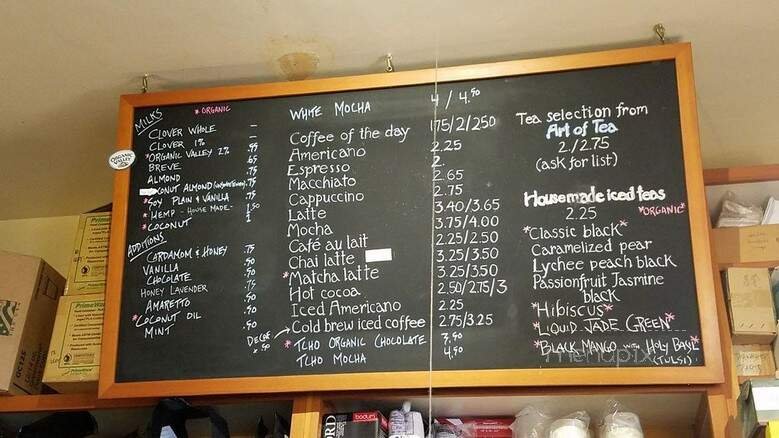 MILKS
* ORGANIC
CLOVER WHOLE —
CLOVER 1% —
*ORGANIC VALLEY 2% .95
BREVE .65
ALMOND .75
CONUT ALMOND .75
*SOY PLAIN & VANILLA .75
*HEMP - HOUSE MADE - 1.50
*COCONUT 1
ADDITIONS
CARDAMOM & HONEY .75
VANILLA .50
CHOCOLATE .50
HONEY LAVENDER .75
AMARETTO .50
*COCONUT OIL .50
MINT
DECAF .50
ORGANIC VALLEY
WHITE MOCHA 4/4.50
Coffee of the day 175/2/250
Americano 2.25
Espresso 2.
Macchiato 2.65
Cappuccino 2.75
Latte 3.40/3.65
Mocha 3.75/4.00
Café au lait 2.25/2.50
Chai latte 3.25/3.50
*Matcha latte 3.25/3.50
Hot cocoa 2.50/2.75/3
Iced Americano 2.25
Cold brew iced coffee 2.75/3.25
*TCHO ORGANIC CHOCOLATE 3.50
TCHO MOCHA 4.50
Tea selection from
Art of Tea
2./2.75
(ask for list)
Housemade iced teas
2.25 *ORGANIC*
*Classic black*
Caramelized pear
Lychee peach black
Passionfruit Jasmine
black
*Hibiscus*
*LIQUID JADE GREEN*
*BLACK MANGO WITH HOLY BASIL
(TULSI)
menupix